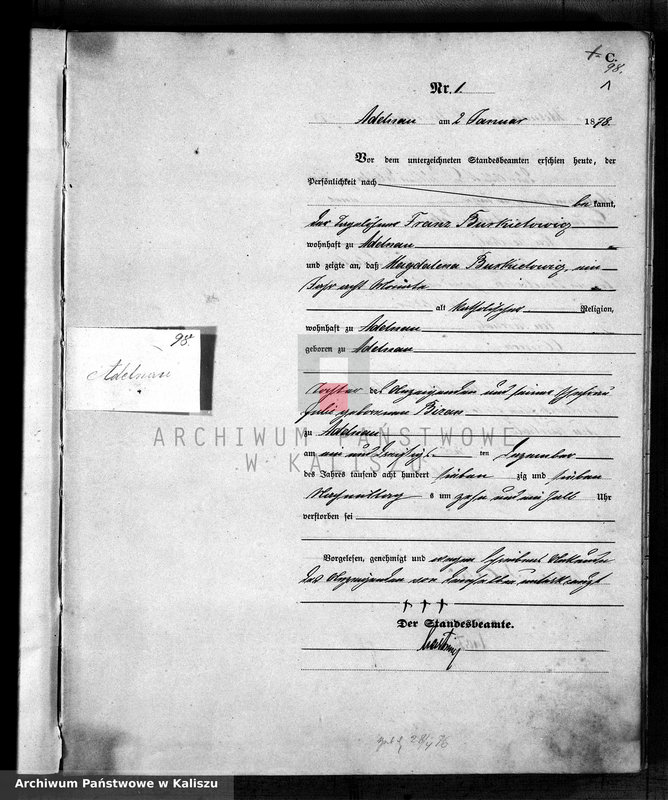 C.
98.
Nr. 1.
Adelnau am 2 Januar 1878.
Vor dem unterzeichneten Standesbeamten erschien heute, der
Persönlichkeit nach
be kannt,
der Tagelöhner Franz
wohnhaft zu Adelnau
und zeigte an, daß Magdalena ein
Jahr acht Monate
alt katholischer Religion,
wohnhaft zu Adelnau
geboren zu Adelnau
Tochter des Anzeigenden und seiner Ehefrau
geborenen
zu Adelnau
am ein und dreißig ten Dezember
des Jahres tausend acht hundert sieben zig und sieben
Nachmittag s um zehn und ein halb Uhr
verstorben sei
Vorgelesen, genehmigt und wegen
des Anzeigenden von demselben unterkreuzt
† † †
Der Standesbeamte.
98.
Adelnau
ARCHIWUM PAŃSTWOWE
W KALISZU
Archiwum Państwowe w Kaliszu